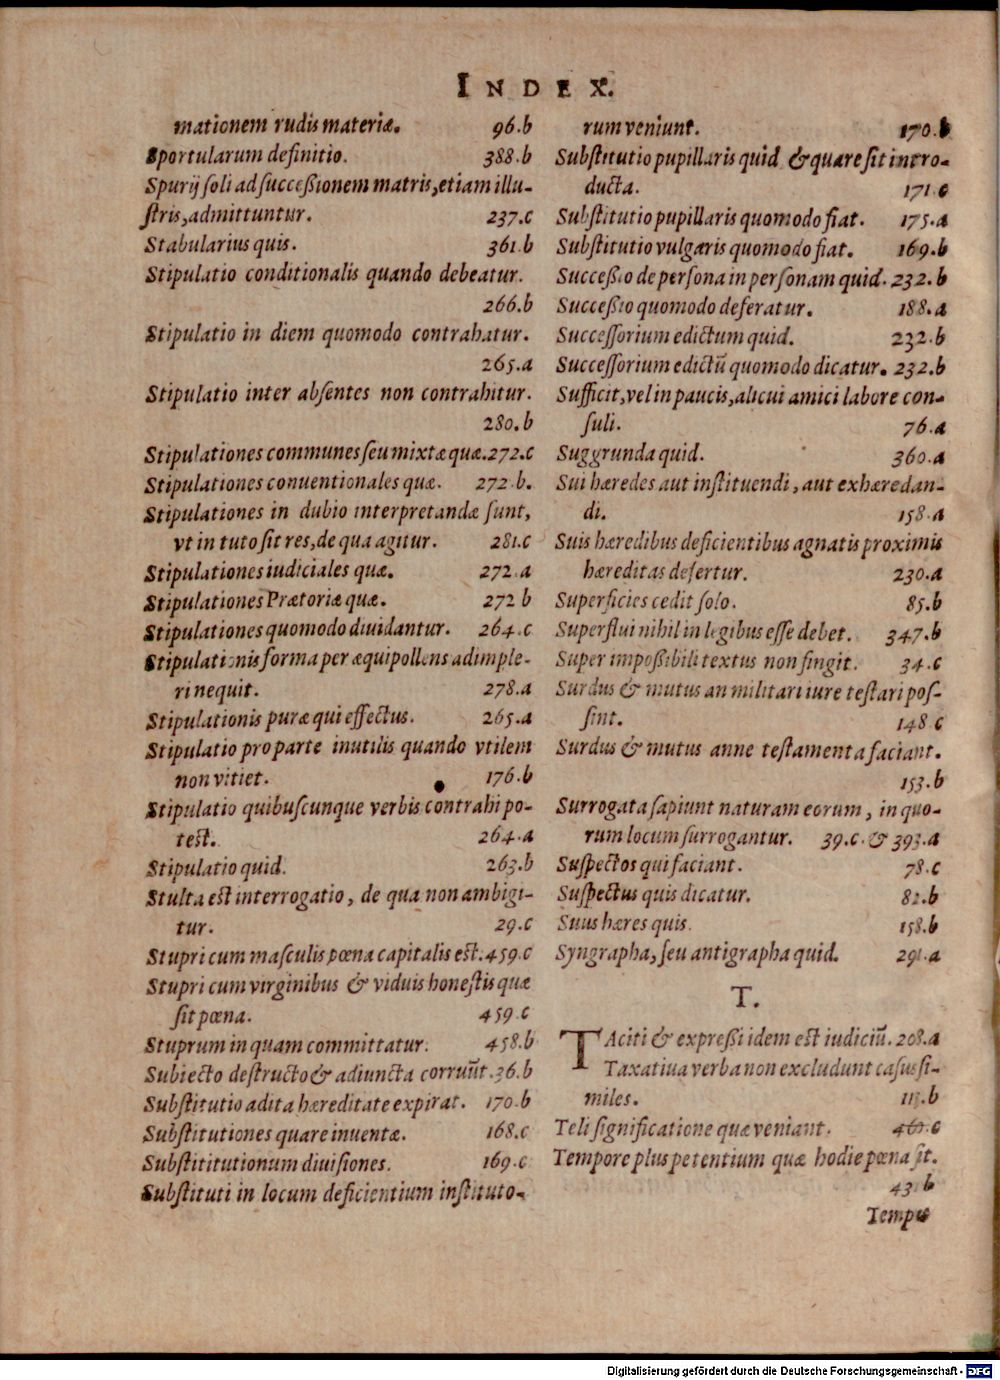 INDEX.
mationem rudis materiæ. 96.b
Sportularum definitio. 388.b
Spurij ſoli ad ſucceßionem matris, etiam illu-
ſtris, admittuntur. 237.c
Stabularius quis. 361.b
Stipulatio conditionalis quando debeatur.
266.b
Stipulatio in diem quomodo contrahatur.
265.a
Stipulatio inter abſentes non contrahitur.
280.b
Stipulationes communes ſeu mixtæ quæ. 272.c
Stipulationes conuentionales quæ. 272.b.
Stipulationes in dubio interpretandæ ſunt,
vt in tuto ſit res, de qua agitur. 281.c
Stipulationes iudiciales quæ. 272.a
Stipulationes Prætoriæ quæ. 272 b
Stipulationes quomodo diuidantur. 264.c
Stipulationis forma per æquipollens adimple-
ri nequit. 278.a
Stipulationis puræ qui effectus. 265.a
Stipulatio pro parte inutilis quando vtilem
non vitiet. 176.b
Stipulatio quibuſcunque verbis contrahi po-
teſt. 264.a
Stipulatio quid. 263.b
Stulta eſt interrogatio, de qua non ambigi-
tur. 29.c
Stupri cum maſculis pœna capitalis eſt. 459.c
Stupri cum virginibus & viduis honeſtis quæ
ſit pœna. 459.c
Stuprum in quam committatur. 458.b
Subiecto deſtructo & adiuncta corruũt. 36.b
Subſtitutio adita hæreditate expirat. 170.b
Subſtitutiones quare inuentæ. 168.c
Subſtititutionum diuiſiones. 169.c
Subſtituti in locum deficientium inſtituto-
rum veniunt. 170.b
Subſtitutio pupillaris quid & quare ſit intro-
ducta. 171.c
Subſtitutio pupillaris quomodo fiat. 175.a
Subſtitutio vulgaris quomodo fiat. 169.b
Succeßio de perſona in perſonam quid. 232.b
Succeßio quomodo deferatur. 188.a
Succeſſorium edictum quid. 232.b
Succeſſorium edictũ quomodo dicatur. 232.b
Sufficit, vel in paucis, alicui amici labore con-
ſuli. 76.a
Suggrunda quid. 360.a
Sui hæredes aut inſtituendi, aut exhæredan-
di. 158.a
Suis hæredibus deficientibus agnatis proximis
hæreditas defertur. 230.a
Superficies cedit ſolo. 85.b
Superflui nihil in legibus eſſe debet. 347.b
Super impoßibili textus non fingit. 34.c
Surdus & mutus an militari iure teſtari poſ-
ſint. 148 c
Surdus & mutus anne teſtamenta faciant.
153.b
Surrogata ſapiunt naturam eorum, in quo-
rum locum ſurrogantur. 39.c. & 393.a
Suſpectos qui faciant. 78.c
Suſpectus quis dicatur. 82.b
Suus hæres quis. 158.b
Syngrapha, ſeu antigrapha quid. 291.a
T.
TAciti & expreßi idem eſt iudiciũ. 208.a
Taxatiua verba non excludunt caſus ſi-
miles. 113.b
Teli ſignificatione quæ veniant. 460.c
Tempore plus petentium quæ hodie pœna ſit.
43.b
Tempus
Digitalisierung gefördert durch die Deutsche Forschungsgemeinschaft - DFG